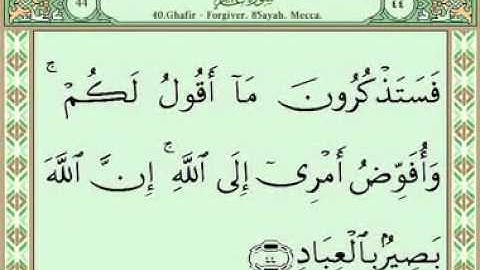 44 سورة غافر ٤٤
40.Ghafir - Forgiver. 85ayah. Mecca.
فَسَتَذْكُرُونَ مَآ أَقُولُ لَكُمْ ۚ
وَأُفَوِّضُ أَمْرِىٓ إِلَى ٱللَّهِ ۚ إِنَّ ٱللَّهَ
بَصِيرٌۢ بِٱلْعِبَادِ ٤٤